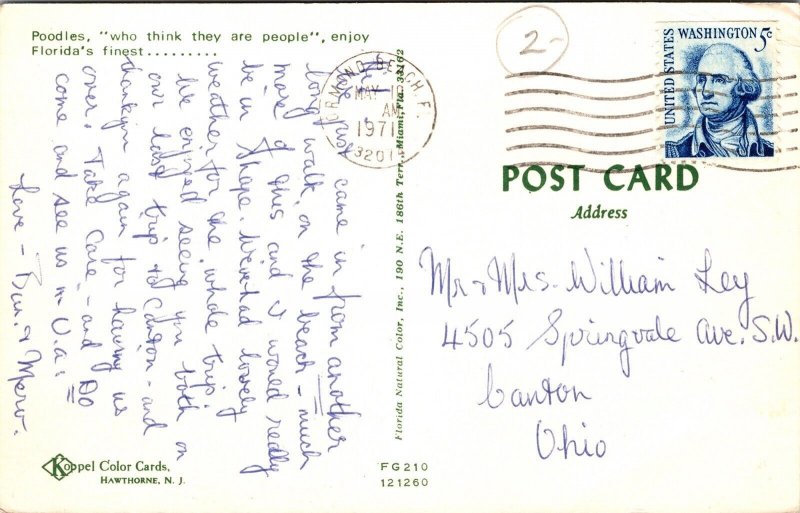 Poodles, "who think they are people", enjoy
Florida's finest.........
Hi -
We just came in from another
long walk on the beach - much
more of this and I would really
be in shape. We've had lovely
weather for the whole trip.
We enjoyed seeing you both on
our last trip to Canton - and
thank you again for having us
over. Take Care - and Do
come and see us in Va.
Love - & Merv.
Koppel Color Cards,
HAWTHORNE, N. J.
FG210
121260
Florida Natural Color, Inc., 190 N.E. 186th Terr., Miami, Fla. 33162
ORMOND BEACH, FL
MAY
AM
1971
32017
2-
UNITED STATES
WASHINGTON 5c
POST CARD
Address
Mr & Mrs. William Ley
4505 Springvale Ave. S.W.
Canton
Ohio